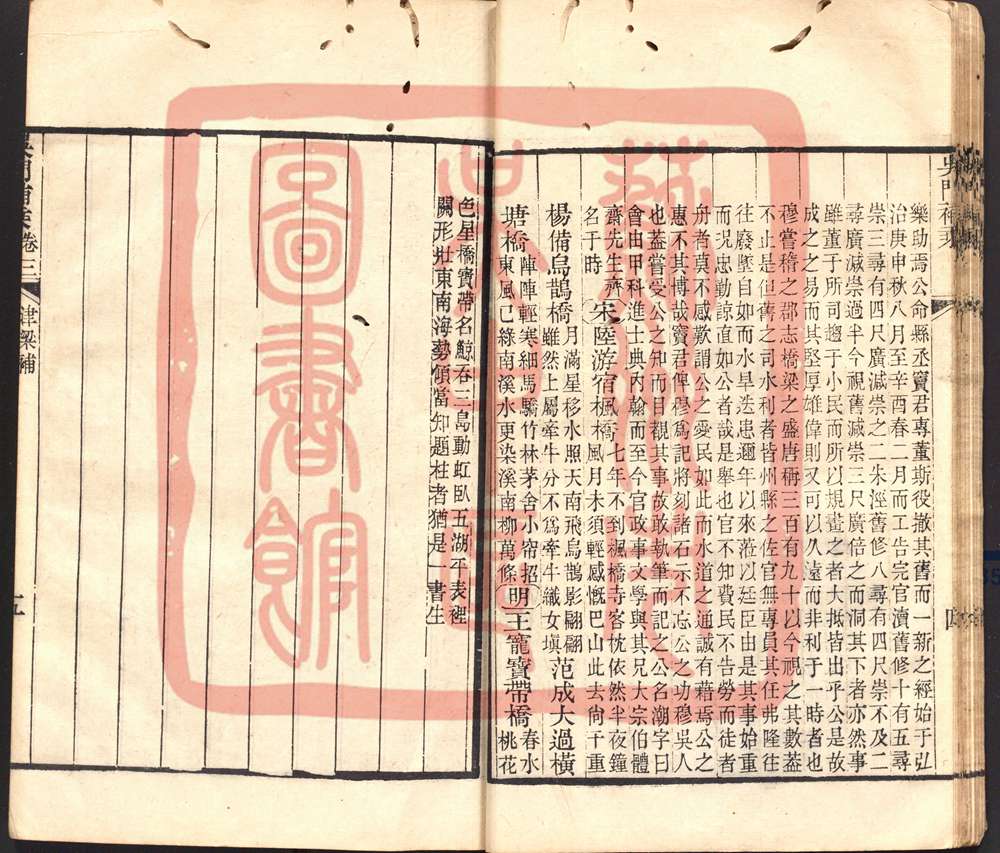 樂助焉公命縣丞竇君專董斯役撤其舊而一新之經始于弘
治庚申秋八月至辛酉春二月而工告完官瀆舊修十有五尋
崇三尋有四尺廣減崇之二朱涇舊修八尋有四尺崇不及二
尋廣減崇過半今視舊減崇三尺廣倍之而洞其下者亦然事
雖董于所司趨于小民而所以規畫之者大抵皆出乎公是故
成之之易而其堅厚雄偉則又可以久遠而非利于一時者也
穆嘗稽之郡志橋梁之盛唐稱三百有九十以今視之其數葢
不止是但舊之司水利者皆州縣之佐官無專員其任弗隆往
往廢墜自如而水旱迭患邇年以來蒞以廷臣由是其事始重
而況忠勤諒直如公者哉是舉也官不知費民不告勞而徒者
舟者莫不感歎謂公之愛民如此而水道之通誠有藉焉公之
惠不其博哉竇君俾穆爲記將刻諸石示不忘公之功穆吳人
也葢嘗受公之知而目觀其事故敢執筆而記之公名潮字曰
會由甲科進士典内翰而至今官政事文學與其兄大宗伯體
齋先生齊
名于時 宋陸游宿楓橋 七年不到楓橋寺客枕依然半夜鐘
風月未須輕感慨巴山此去尚千重
楊備烏鵲橋 月滿星移水照天南飛烏鵲影翩翩
雖然上屬牽牛分不爲牽牛織女塡 范成大過橫
塘橋 陣陣輕寒細馬驕竹林茅舍小帘招
東風已綠南溪水更染溪南柳萬條 明王寵寶帶橋 春水
桃花
色星橋寶帶名鯨吞三島動虹臥五湖平表裡
關形壯東南海勢傾當知題柱者猶是一書生
卷三
津梁補
五
圖書館